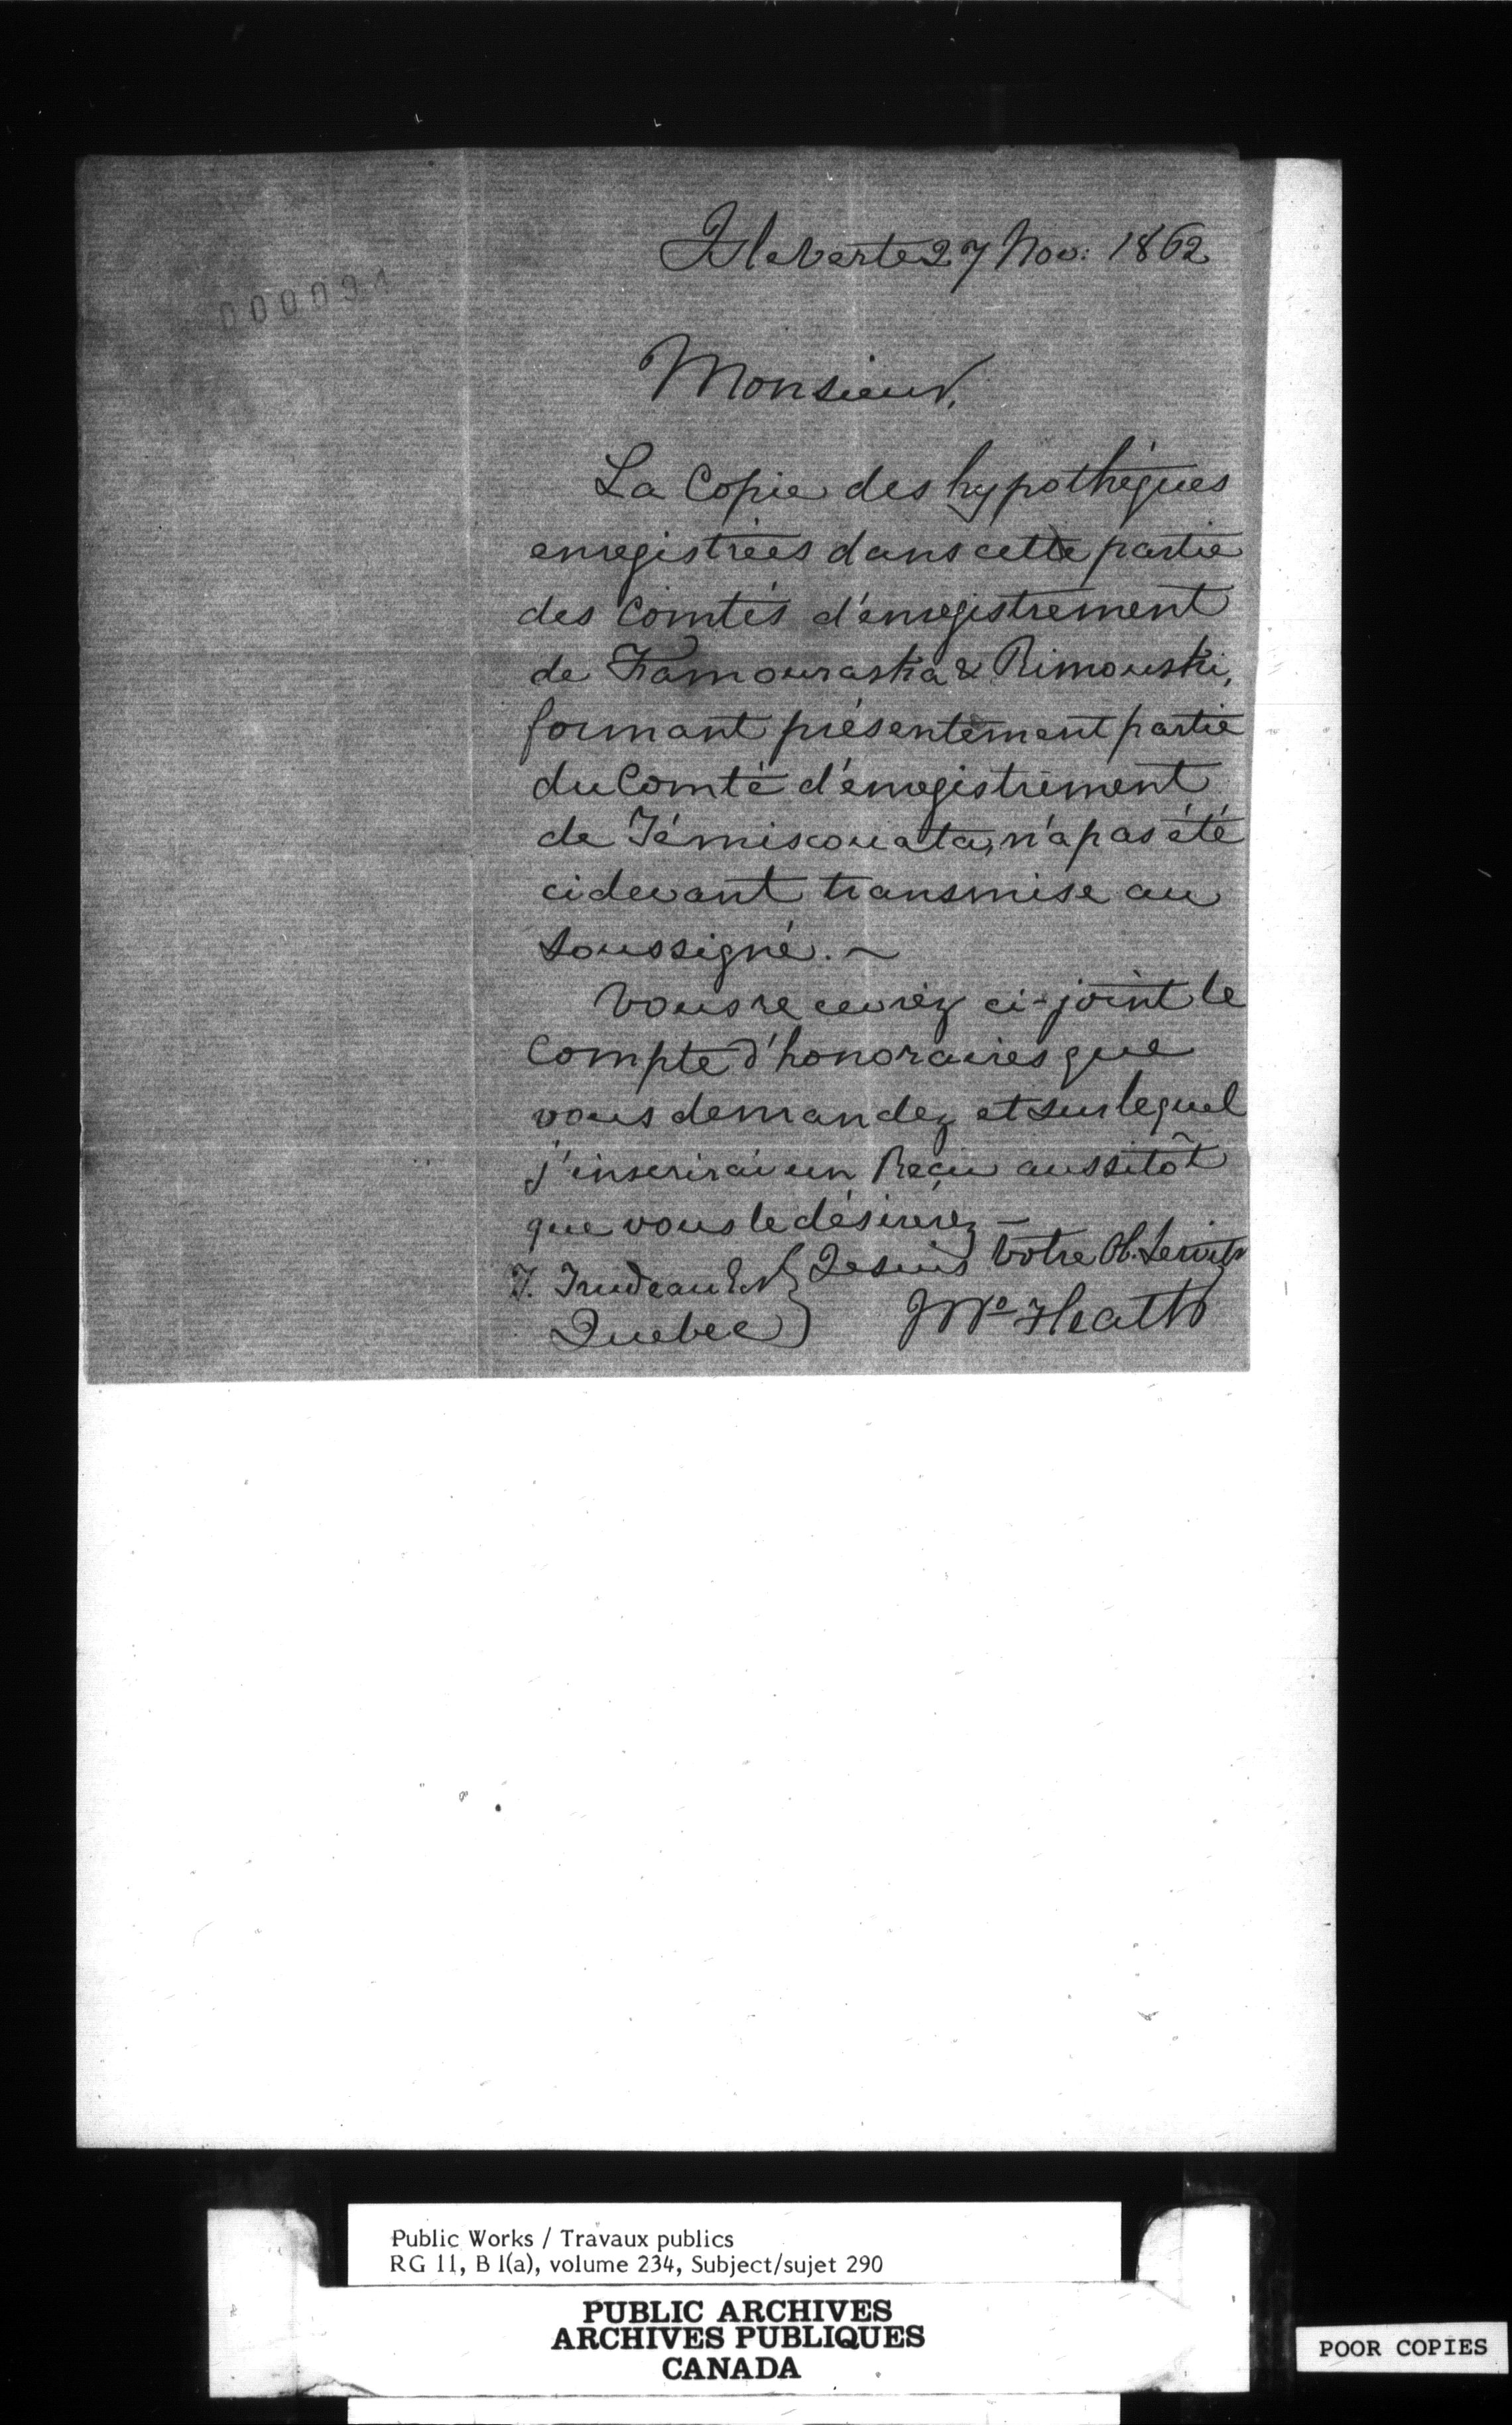 Isle Verte 27 Nov: 1862
000091
Monsieur,
La Copie des hypothèques
enregistrées dans cette partie
des Comtés d'enregistrement
de Kamouraska & Rimouski,
formant présentement partie
du Comté d'enregistrement
de Témiscouata, n'a pas été
cidevant transmise au
soussigné. ~
Vous recevrez ci-joint le
Compte d'honoraires que
vous demandez et sur lequel
j'inscrirai un Reçu aussitôt
que vous le désirerez —
Je suis Votre Ob. Servitr
T. Trudeau
Quebec
Jno Heath
Public Works / Travaux publics
RG 11, B 1(a), volume 234, Subject/sujet 290
PUBLIC ARCHIVES
ARCHIVES PUBLIQUES
CANADA
POOR COPIES